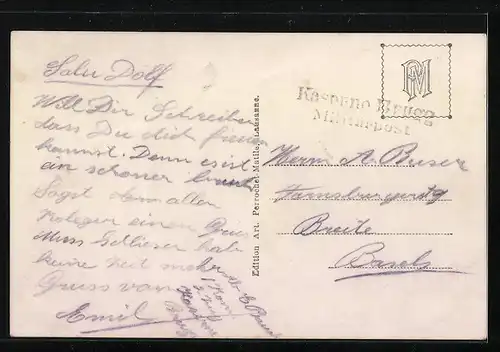 Salu Dölf
Will Dir Schreiben
dass Du dich freuen
kannst. Denn es ist
ein schöner
Sagst dem alten
Kolegen einen Gruss
Muss Schliesen hab
keine Zeit mehr
Gruss von
Emil
Edition Art. Perrochet-Matile, Lausanne.
PM
Kaserne Brugg
Militärpost
Herrn A. Buser
Farnsburgerstg
Breite
Basel